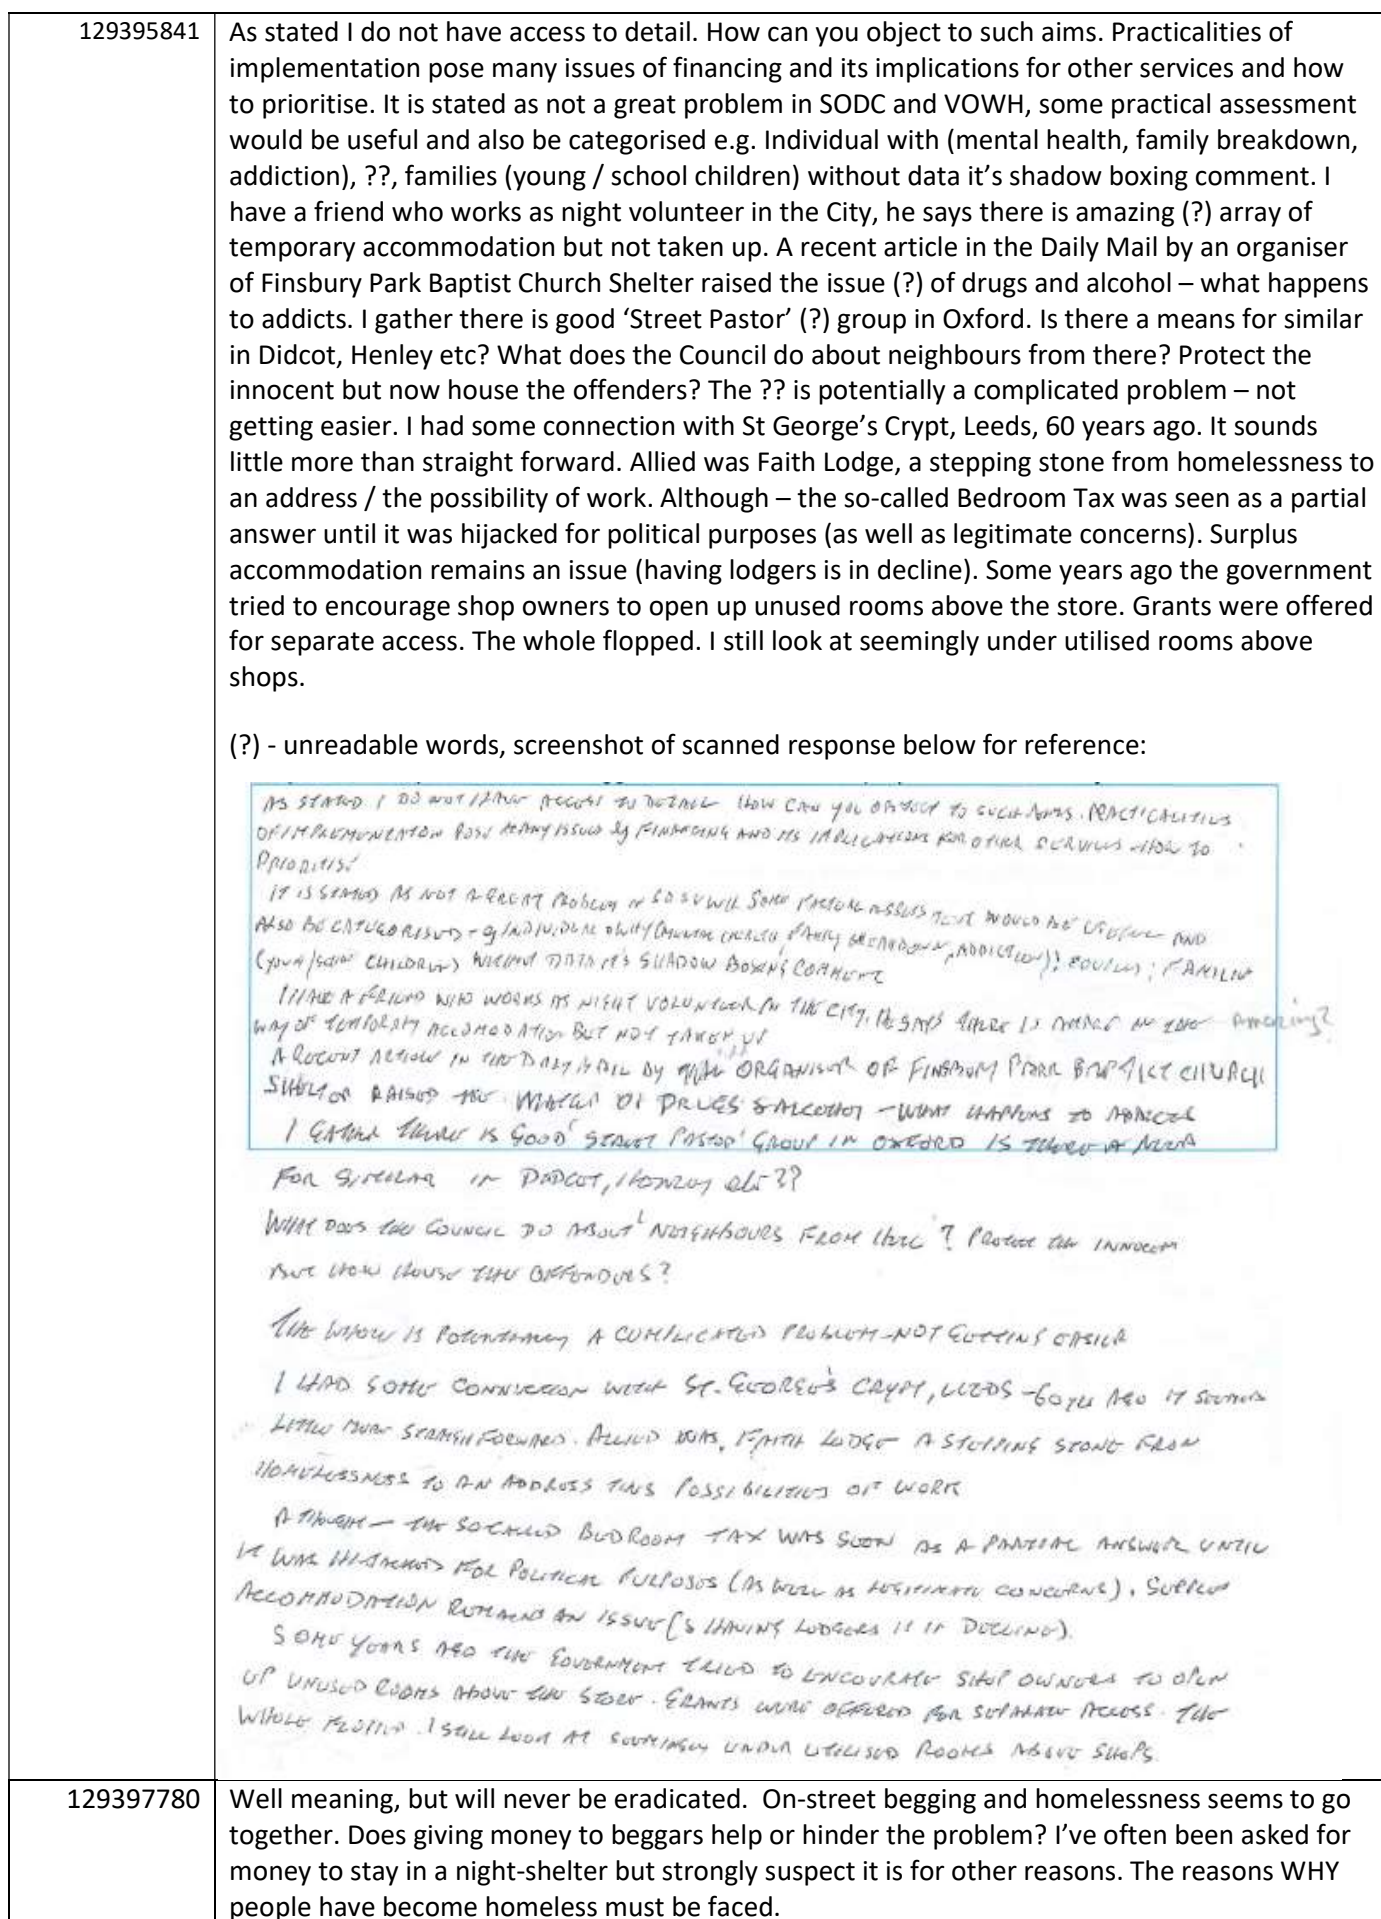 129395841
As stated I do not have access to detail. How can you object to such aims. Practicalities of
implementation pose many issues of financing and its implications for other services and how
to prioritise. It is stated as not a great problem in SODC and VOWH, some practical assessment
would be useful and also be categorised e.g. Individual with (mental health, family breakdown,
addiction), ??, families (young / school children) without data it’s shadow boxing comment. I
have a friend who works as night volunteer in the City, he says there is amazing (?) array of
temporary accommodation but not taken up. A recent article in the Daily Mail by an organiser
of Finsbury Park Baptist Church Shelter raised the issue (?) of drugs and alcohol – what happens
to addicts. I gather there is good ‘Street Pastor’ (?) group in Oxford. Is there a means for similar
in Didcot, Henley etc? What does the Council do about neighbours from there? Protect the
innocent but now house the offenders? The ?? is potentially a complicated problem – not
getting easier. I had some connection with St George’s Crypt, Leeds, 60 years ago. It sounds
little more than straight forward. Allied was Faith Lodge, a stepping stone from homelessness to
an address / the possibility of work. Although – the so-called Bedroom Tax was seen as a partial
answer until it was hijacked for political purposes (as well as legitimate concerns). Surplus
accommodation remains an issue (having lodgers is in decline). Some years ago the government
tried to encourage shop owners to open up unused rooms above the store. Grants were offered
for separate access. The whole flopped. I still look at seemingly under utilised rooms above
shops.
(?) - unreadable words, screenshot of scanned response below for reference:
AS STATED I DO NOT HAVE ACCESS TO DETAIL HOW CAN YOU OBJECT TO SUCH AIMS. PRACTICALITIES
OF IMPLEMENTATION POSE MANY ISSUES OF FINANCING AND ITS IMPLICATIONS FOR OTHER SERVICES HOW TO
PRIORITISE
IT IS STATED AS NOT A GREAT PROBLEM IN SOME ASSESSMENT WOULD BE USEFUL AND
ALSO BE CATEGORISED eg INDIVIDUAL (MENTAL HEALTH, FAMILY BREAKDOWN, ADDICTION); FAMILIES
(YOUNG/SCHOOL CHILDREN) WITHOUT DATA IT'S SHADOW BOXING COMMENT
I HAVE A FRIEND WHO WORKS AS NIGHT VOLUNTEER IN THE CITY, HE SAYS THERE IS Amazing?
WAY OF TEMPORARY ACCOMODATION BUT NOT TAKEN UP
A RECENT ARTICLE IN THE DAILY MAIL BY ORGANISER OF FINSBURY PARK BAPTIST CHURCH
SHELTER RAISED THE MATTER OF DRUGS & ALCOHOL - WHAT HAPPENS TO ADDICTS
I GATHER THERE IS GOOD 'STREET PASTOR' GROUP IN OXFORD IS THERE A NEED
FOR SIMILAR IN DIDCOT, HENLEY etc??
WHAT DOES THE COUNCIL DO ABOUT 'NEIGHBOURS FROM HELL'? PROTECT THE INNOCENT
BUT HOW HOUSE THE OFFENDERS?
THE WHOLE IS POTENTIALLY A COMPLICATED PROBLEM - NOT GETTING EASIER
I HAD SOME CONNECTION WITH ST. GEORGE'S CRYPT, LEEDS - 60 YRS AGO IT SEEMED
LITTLE MORE STRAIGHTFORWARD. ALLIED WAS, FAITH LODGE A STEPPING STONE FROM
HOMELESSNESS TO AN ADDRESS THUS POSSIBILITIES OF WORK
A THOUGHT - THE SO CALLED BEDROOM TAX WAS SEEN AS A PARTIAL ANSWER UNTIL
IT WAS HIJACKED FOR POLITICAL PURPOSES (AS WELL AS LEGITIMATE CONCERNS). SURPLUS
ACCOMMODATION REMAINS AN ISSUE (& HAVING LODGERS IS IN DECLINE).
SOME YEARS AGO THE GOVERNMENT TRIED TO ENCOURAGE SHOP OWNERS TO OPEN
UP UNUSED ROOMS ABOVE THE STORE. GRANTS WERE OFFERED FOR SEPARATE ACCESS. THE
WHOLE FLOPPED. I STILL LOOK AT SEEMINGLY UNDER UTILISED ROOMS ABOVE SHOPS.
129397780
Well meaning, but will never be eradicated.  On-street begging and homelessness seems to go
together. Does giving money to beggars help or hinder the problem? I’ve often been asked for
money to stay in a night-shelter but strongly suspect it is for other reasons. The reasons WHY
people have become homeless must be faced.